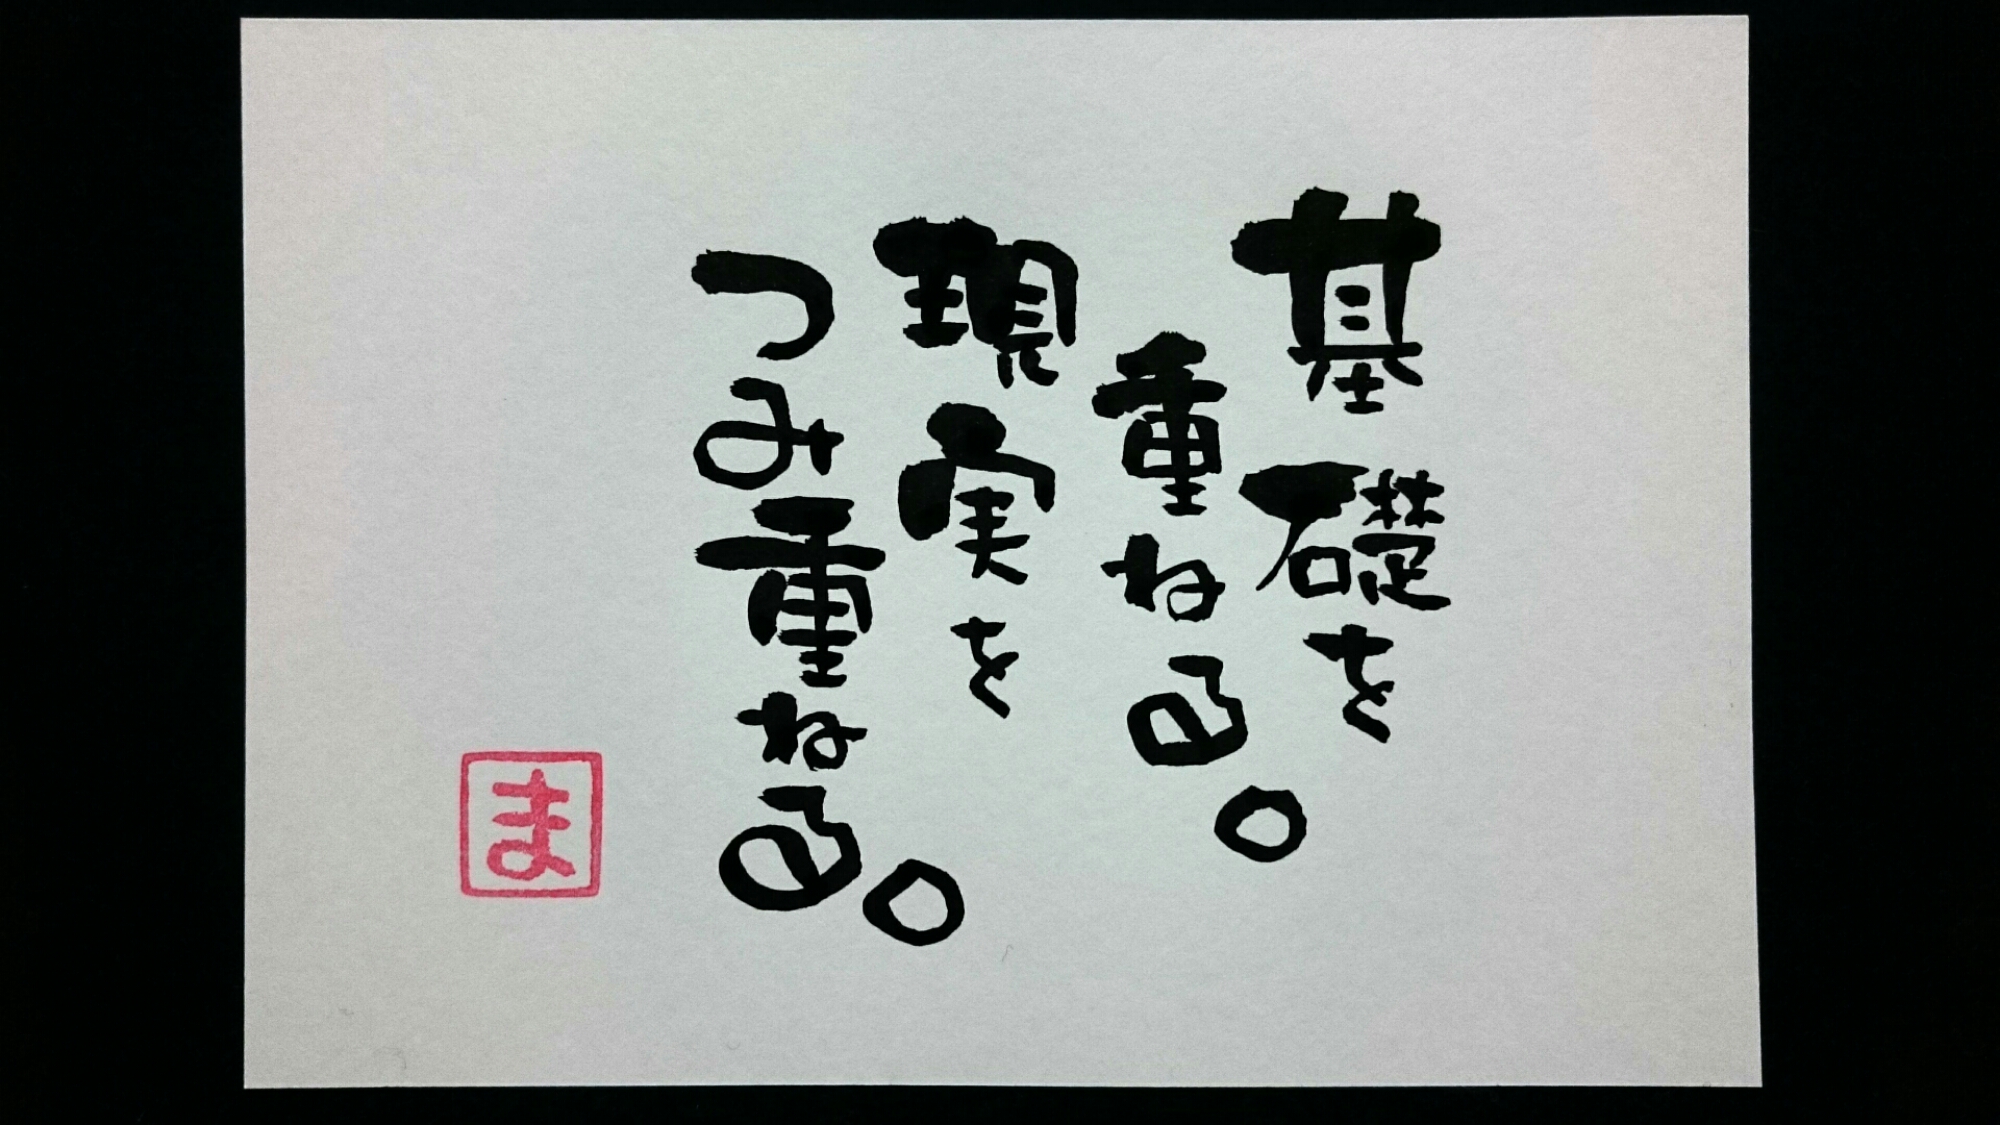 基礎を
重ねる。
現実を
つみ重ねる。
ま